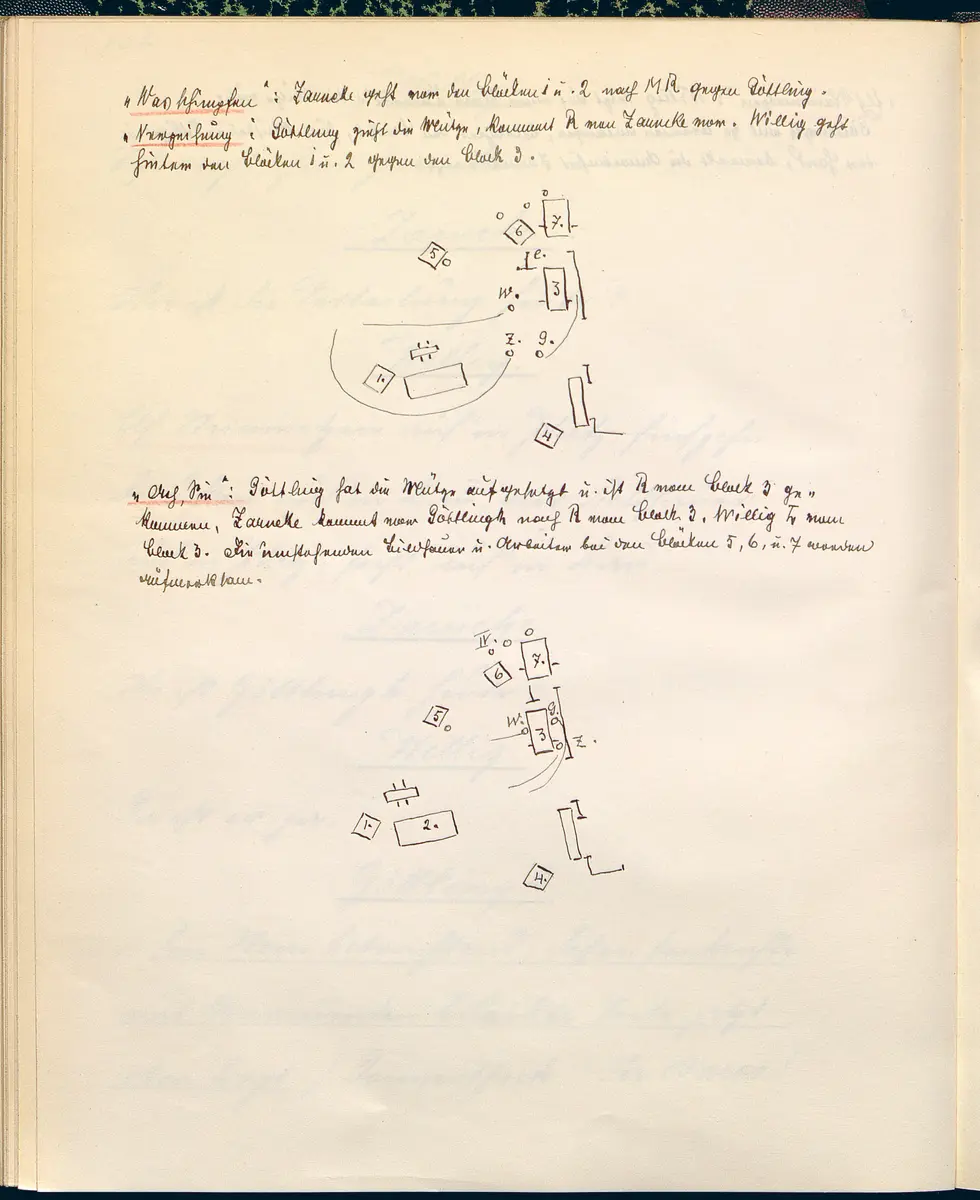 „Was schimpfen“: Zarncke geht vorn den Blöcken 1 u. 2 nach MR gegen Göttling.
„Verzeihung“: Göttling zieht die Mütze, kommt R von Zarncke vor. Willig geht
hinter den Blöcken 1 u. 2 gegen den Block 3.
7.
6
5
e.
W.
3
Z. G.
1.
4
„Ach, Sie“: Göttling hat die Mütze aufgesetzt u. ist R vom Block 3 ge„
kommen, Zarncke kommt vor Göttlingk nach R vom Block 3. Willig L vom
Block 3. Die umstehenden Bildhauer u. Arbeiter bei den Blöcken 5, 6, u. 7 werden
aufmerksam.
IV.
7.
6
5
G.
W.
3
Z.
1.
2.
4.